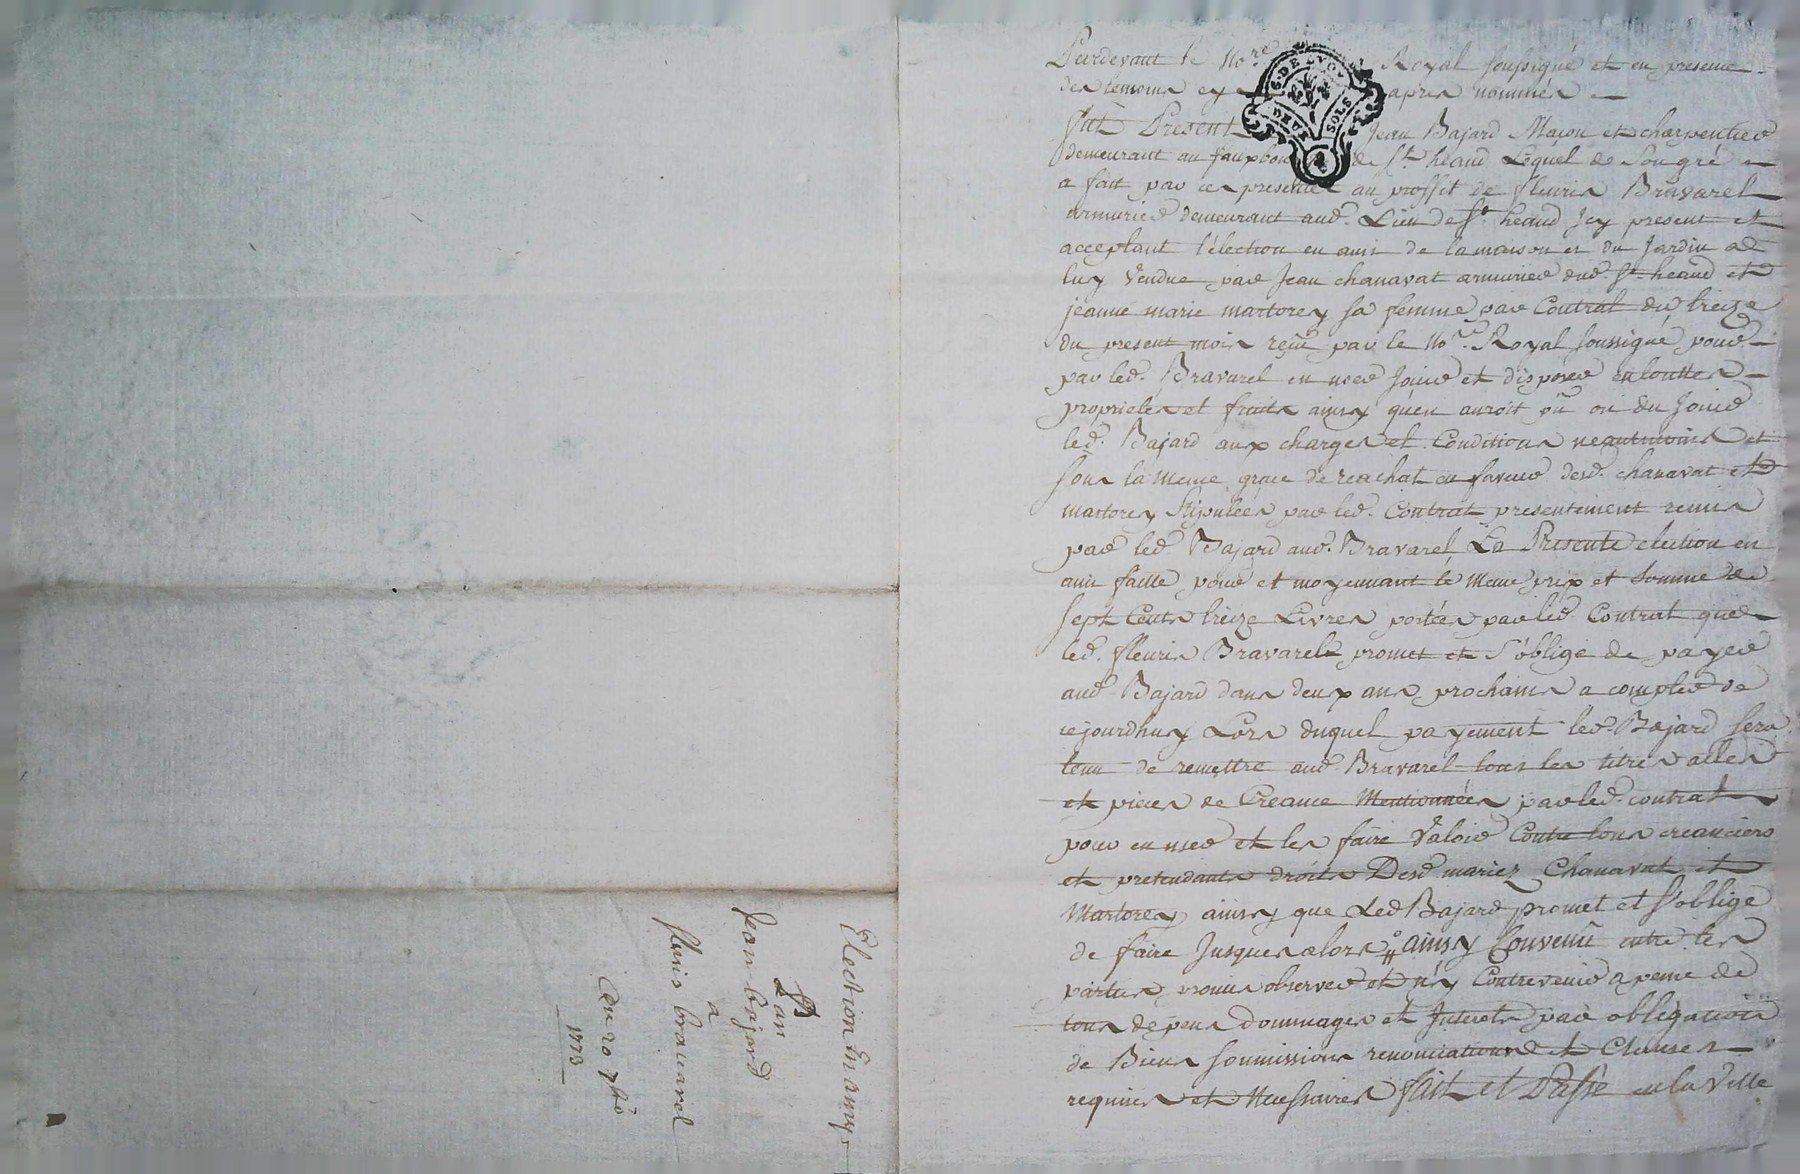 Pardevant le No.re Royal soussigné et en presence
des temoins cy apres nommés
G. DE LYON
DEUX SOLS
fut Present Jean Bajard Maçon et charpentier
demeurant au fauxbour de St. heand Lequel de Son gré
a fait par ces presentes au proffit de fleuris Bravarel
armurier demeurant aud. Lieu de St. heand Icy present et
acceptant l'élection en ami de la maison et du Jardin a
luy vendue par Jean chanavat armurier dud. St. heand et
jeanne marie martorey sa femme par Contrat du treize
du present mois reçû par le No.re Royal soussigné, pour
par led. Bravarel en user Jouir et disposer en touttes
proprietés et fruits ainsy qu'en auroit pû ou dû Jouir
led. Bajard aux charges et Conditions neantmoins et
sous la meme grace de reachat en faveur desd. chanavat et
martorey Stipulées par led. Contrat presentement remis
par led Bajard aud. Bravarel La Presente election en
ami faitte pour et moyennant le meme prix et somme de
sept Cents treize Livres portées par led. Contrat que
led. fleuris Bravarel promet et s'oblige de payer
aud. Bajard dans deux ans prochains a compter de
cejourdhuy Lors duquel payement led. Bajard sera
tenu de remettre aud. Bravarel tous les titres actes
et pieces de Creance Mentionnées par led. contrat
pour en user et les faire Valoir Contre tous creanciers
et pretendants droits Desd mariez Chanavat et
Martorey ainsy que Led Bajard promet et s'oblige
de faire Jusques alors ainsy Convenû entre les
parties, promis observer et n'y Contrevenir a peine de
tous depens dommages et Interets par obligation
de Biens soumissions renonciations et Clauses
requises et Necessaires fait et Passé en la Ville
Election En amy
Par
Jean bajard
a
fleuris bravarel
Du 20 7bre
1773